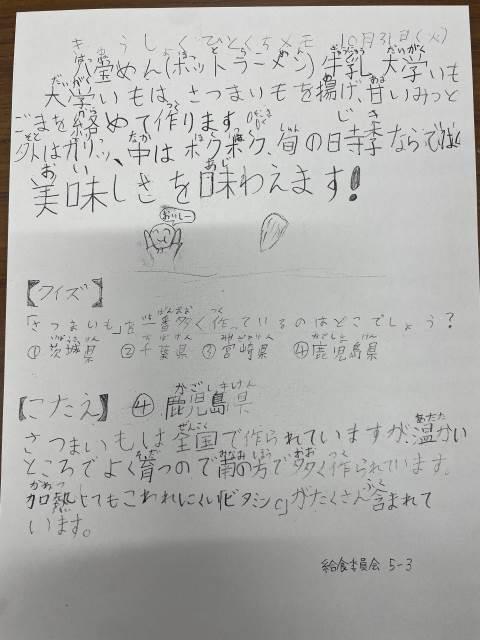 きゅうしょくひとくちメモ 10月31日(火)
八宝めん(ホットラーメン) 牛乳 大学いも
大学いもは、さつまいもを揚げ、甘いみつと
ごまを絡めて作ります。
外はカリッ、中はホクホク、旬の時季ならではの
美味しさを味わえます!
おいしー
【クイズ】
「さつまいも」を一番多く作っているのはどこでしょう?
①茨城県 ②千葉県 ③宮崎県 ④鹿児島県
【こたえ】 ④ 鹿児島県
さつまいもは全国で作られていますが、温かい
ところでよく育つので南の方で多く作られています。
加熱してもこわれにくい「ビタミンC」がたくさん含まれて
います。
給食委員会 5-3